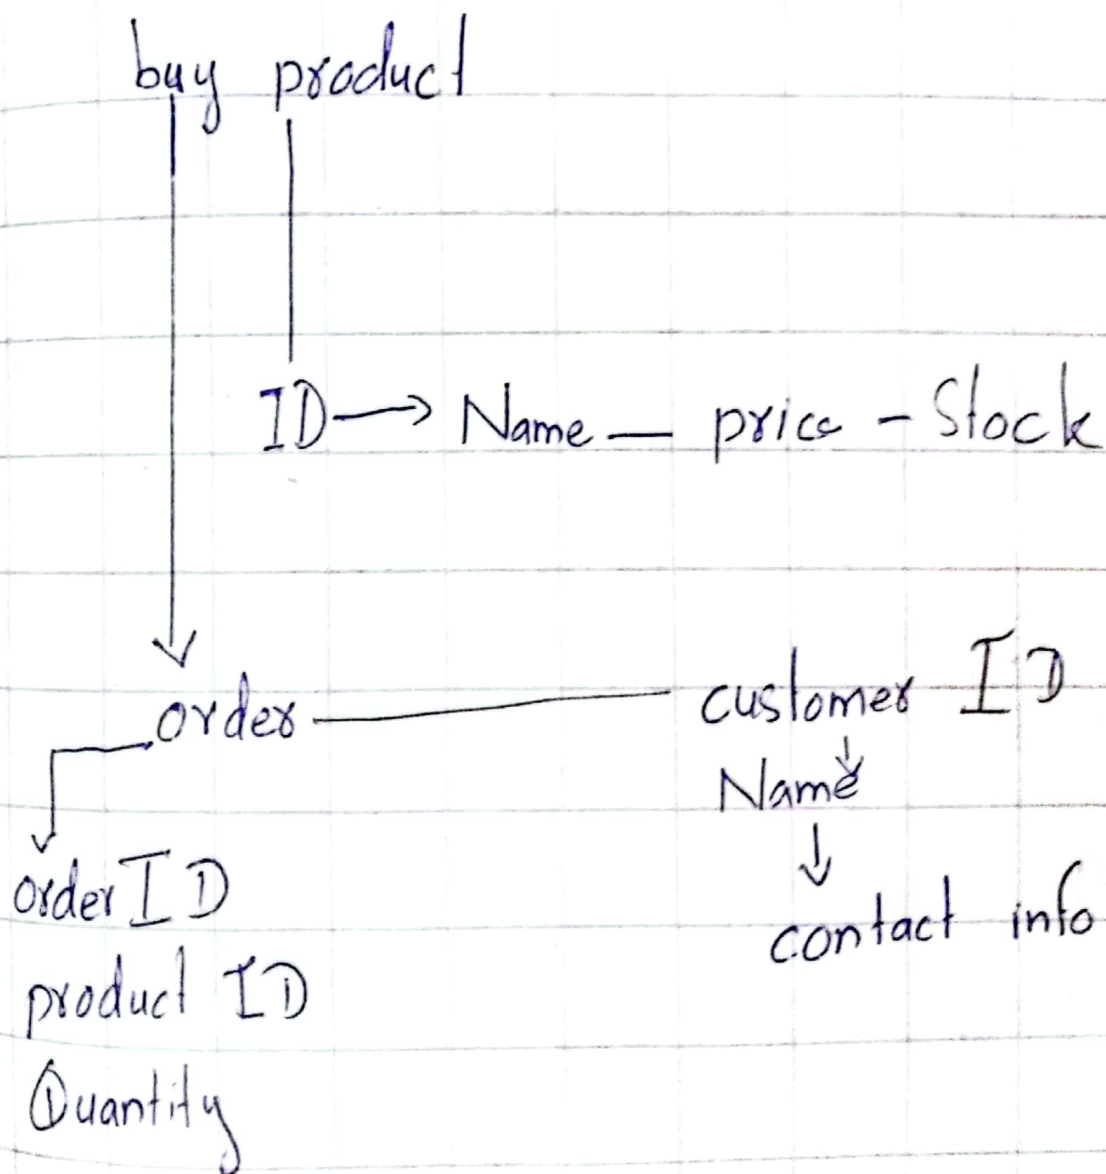 buy product
ID → Name — price - Stock
order — customer ID
Name
contact info
order ID
product ID
Quantity